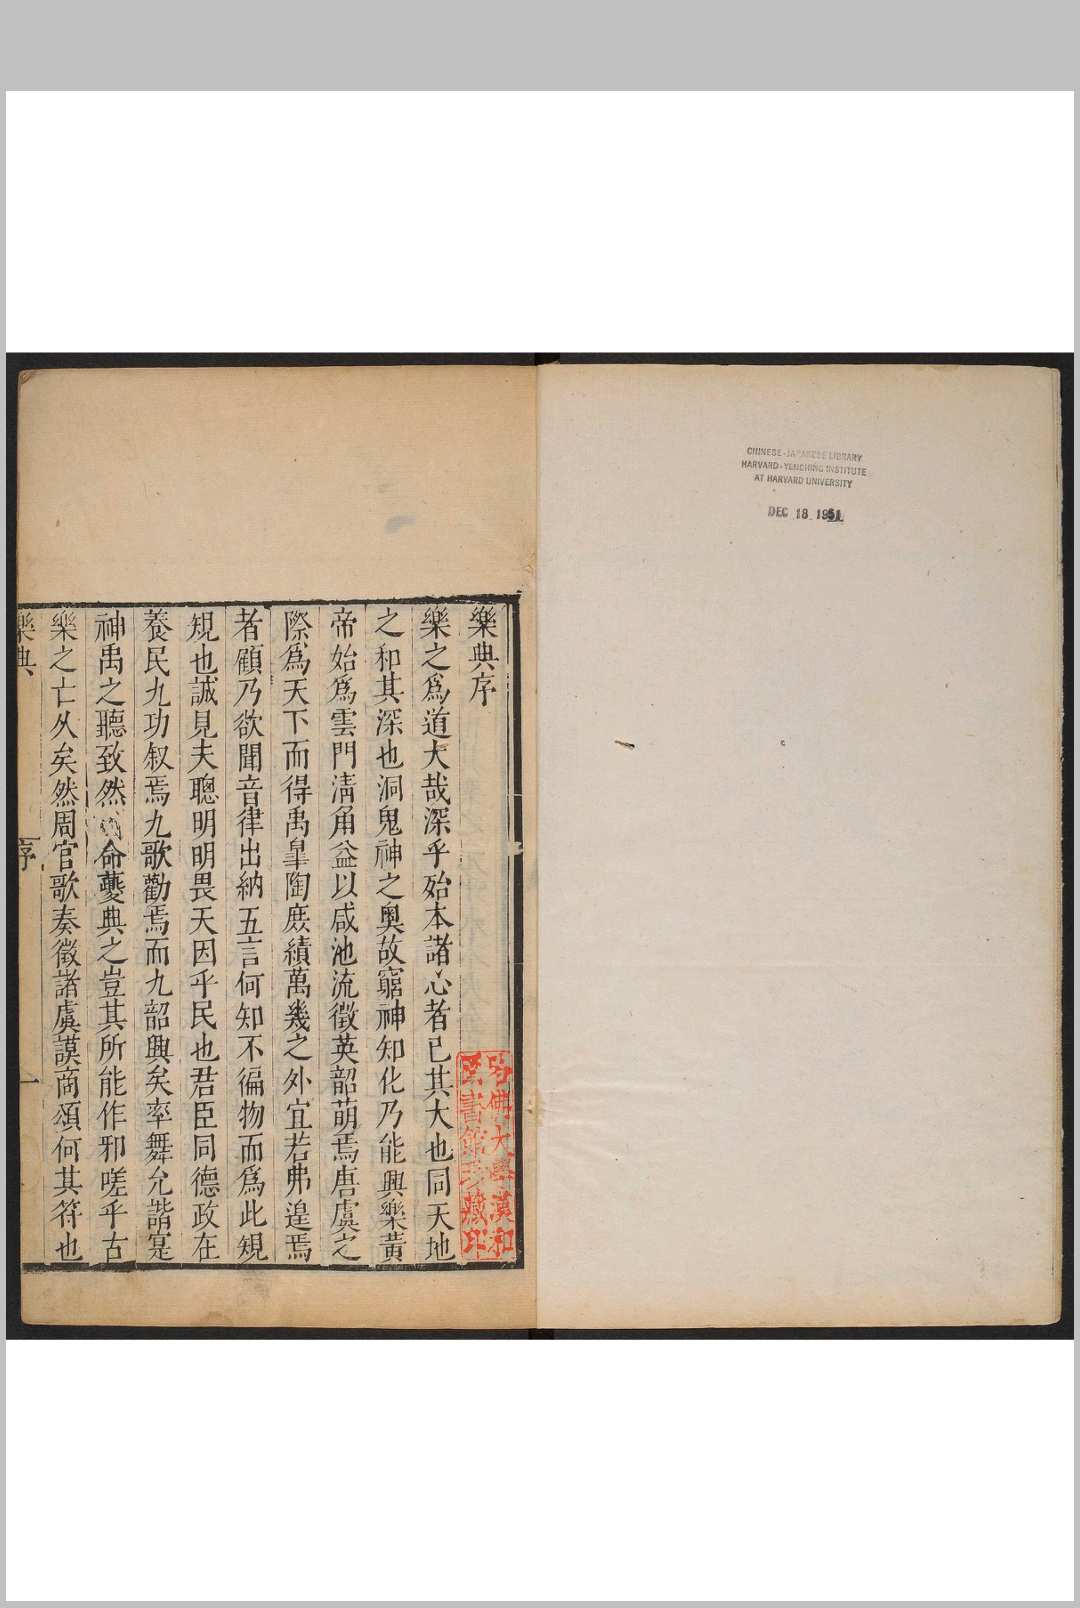 CHINESE-JAPANESE LIBRARY
HARVARD-YENCHING INSTITUTE
AT HARVARD UNIVERSITY
DEC 18 1951
樂典序
樂之爲道大哉深乎始本諸心者已其大也同天地
之和其深也洞鬼神之奧故窮神知化乃能興樂黃
帝始爲雲門清角益以咸池流徵英韶萌焉唐虞之
際爲天下而得禹臯陶庶績萬幾之外宜若弗遑焉
者顧乃欲聞音律出納五言何知不徧物而爲此規
規也誠見夫聰明明畏天因乎民也君臣同德政在
養民九功叙焉九歌勸焉而九韶興矣率舞允諧寔
神禹之聽致然命夔典之豈其所能作邪嗟乎古
樂之亡久矣然周官歌奏徵諸虞謨商頌何其符也
樂典
序
一
哈佛大學漢和
圖書館珍藏印